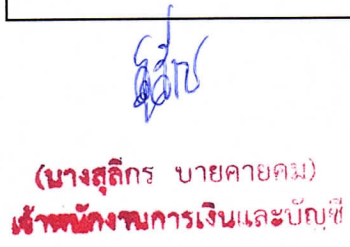 (นางสุลีกร บายคายคม)
เจ้าพนักงานการเงินและบัญชี